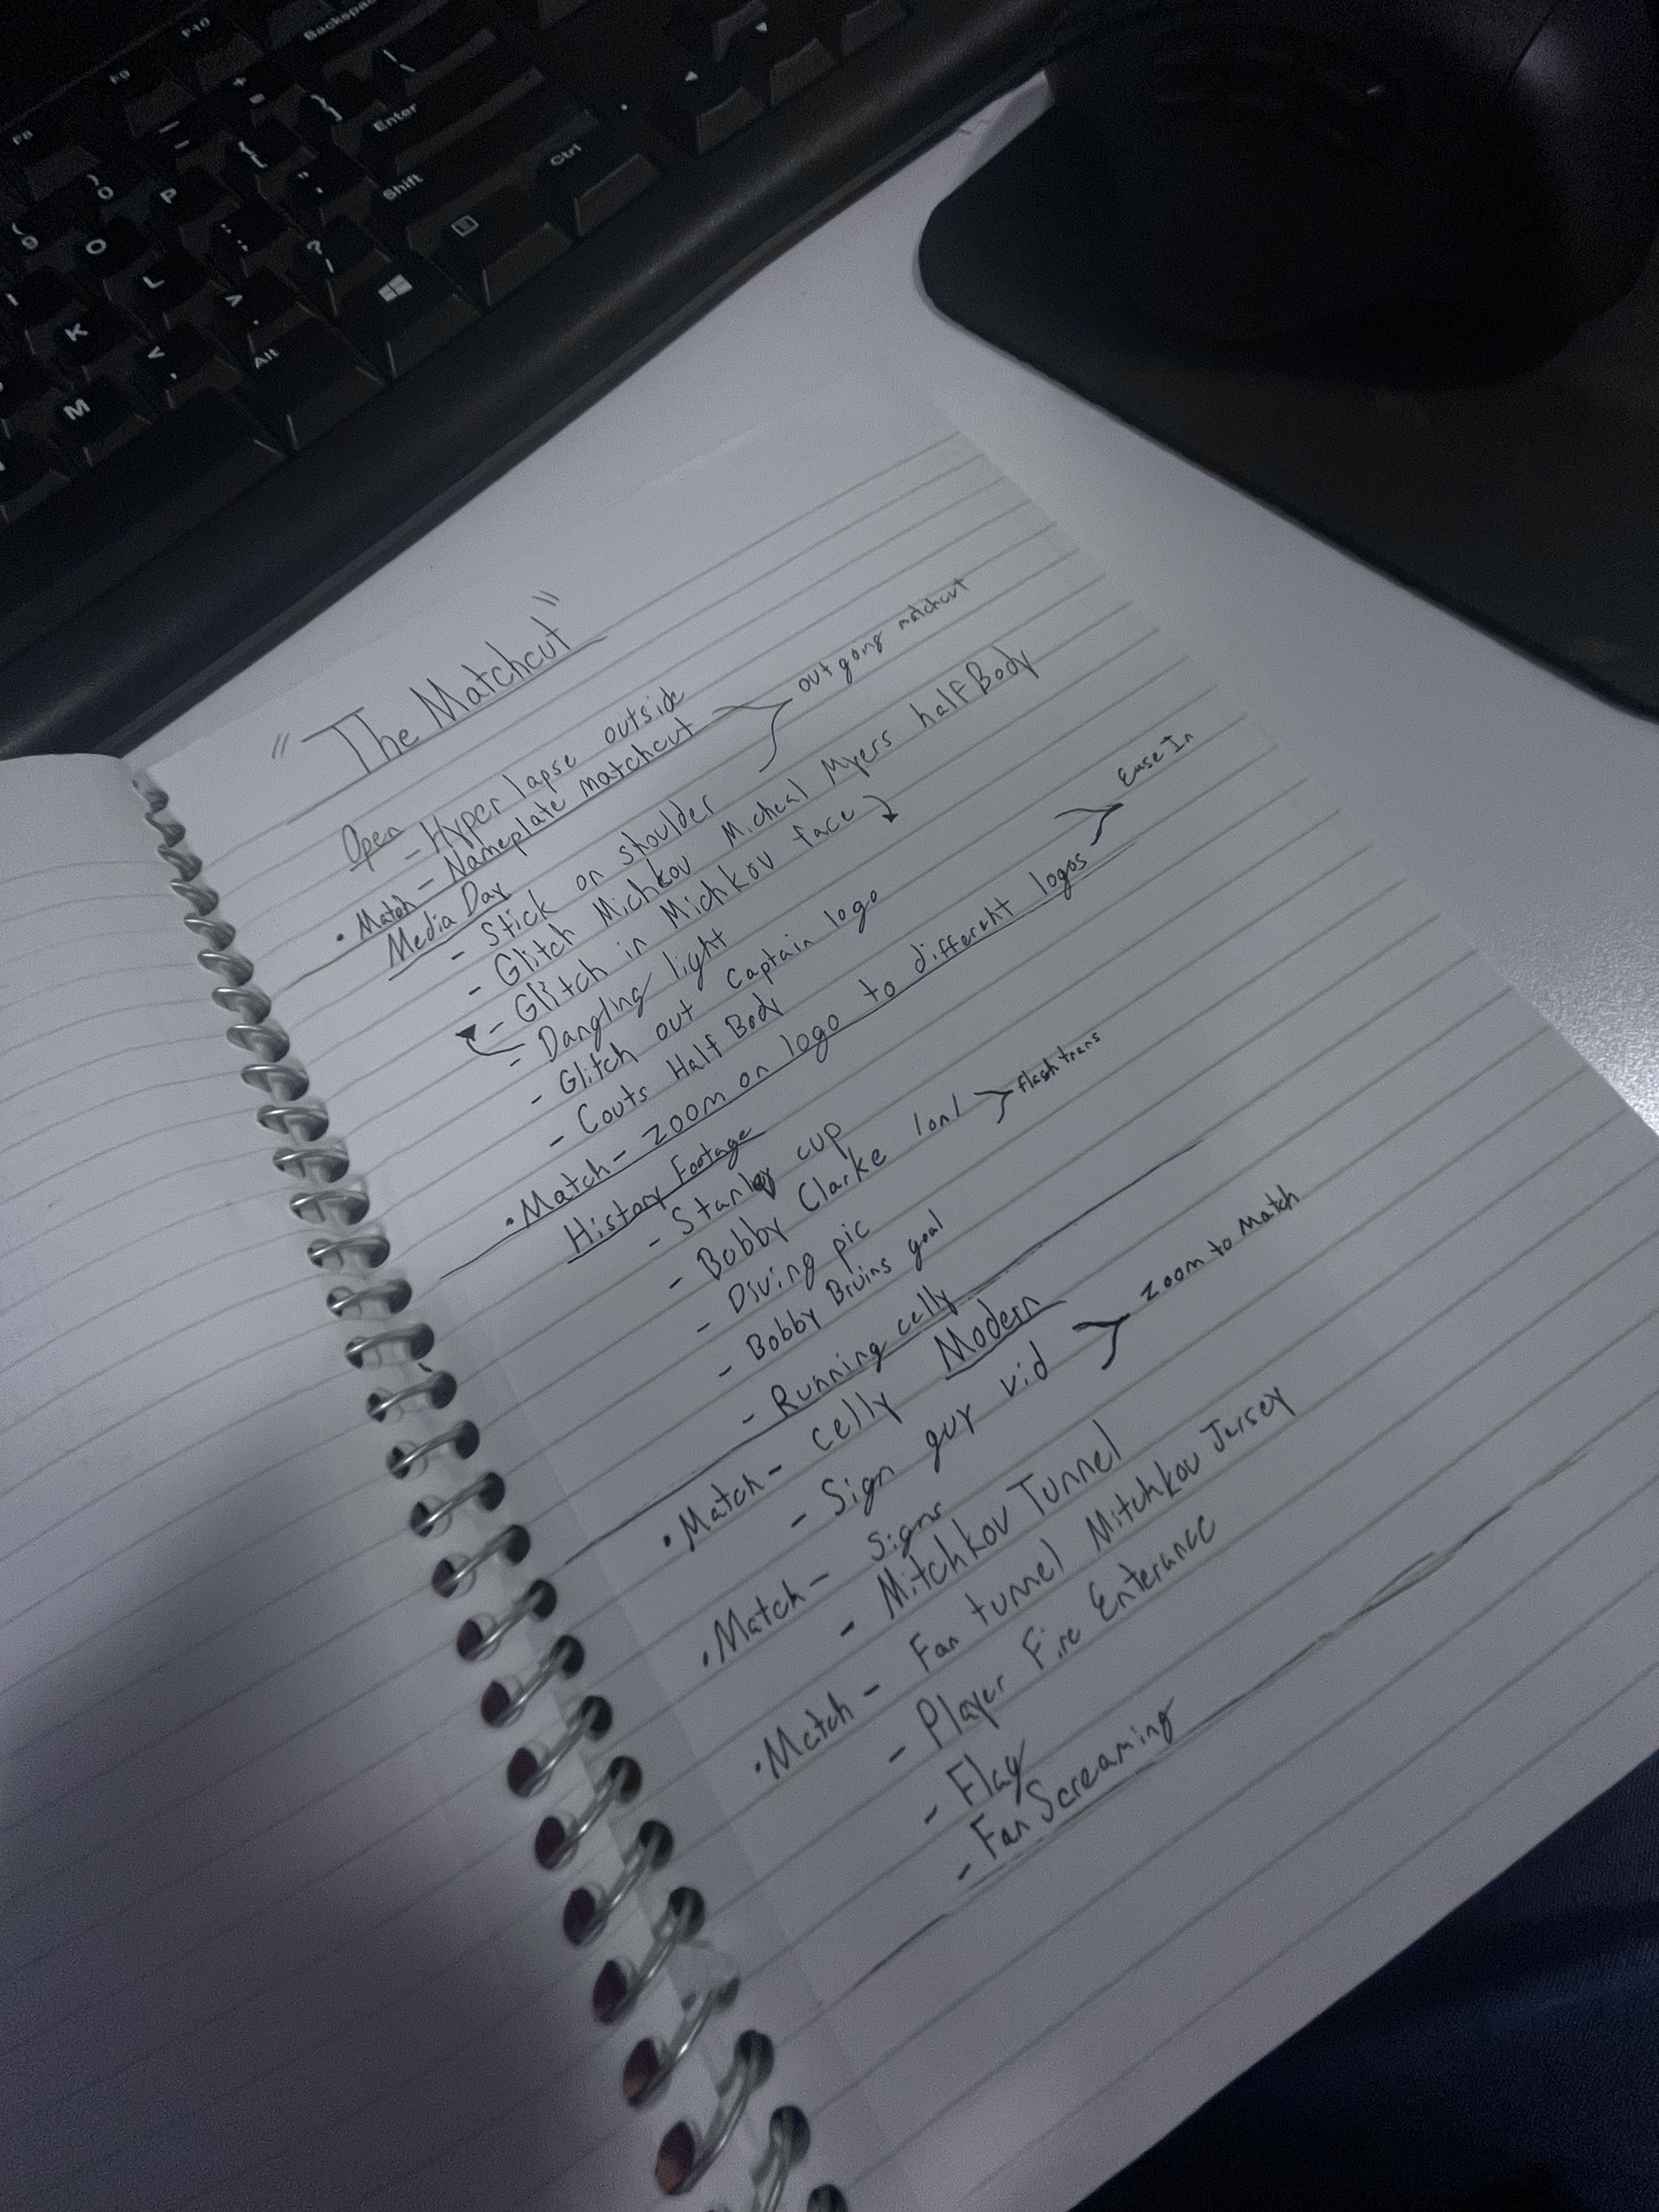 F10
Backspace
F9
F8
Enter
Shift
Ctrl
Alt
P
O
L
K
M
"The Matchcut"
Open - Hyper lapse outside
• Match - Nameplate matchcut
outgong matchcut
Media Day
- Stick on shoulder
- Glitch Michkov Micheal Myers half Body
- Glitch in Michkov face
- Dangling light
- Glitch out captain logo
- Couts Half Body
• Match - zoom on logo to different logos
Ease In
History Footage
- Stanley cup
- Bobby Clarke 1on1
flash trans
- Diving pic
- Bobby Bruins goal
- Running celly
• Match - celly Modern
- Sign guy vid
zoom to Match
• Match - Signs
- Mitchkov Tunnel
• Match - Fan tunnel Mitchkov Jersey
- Player Fire Enterance
- Flag
- Fan Screaming